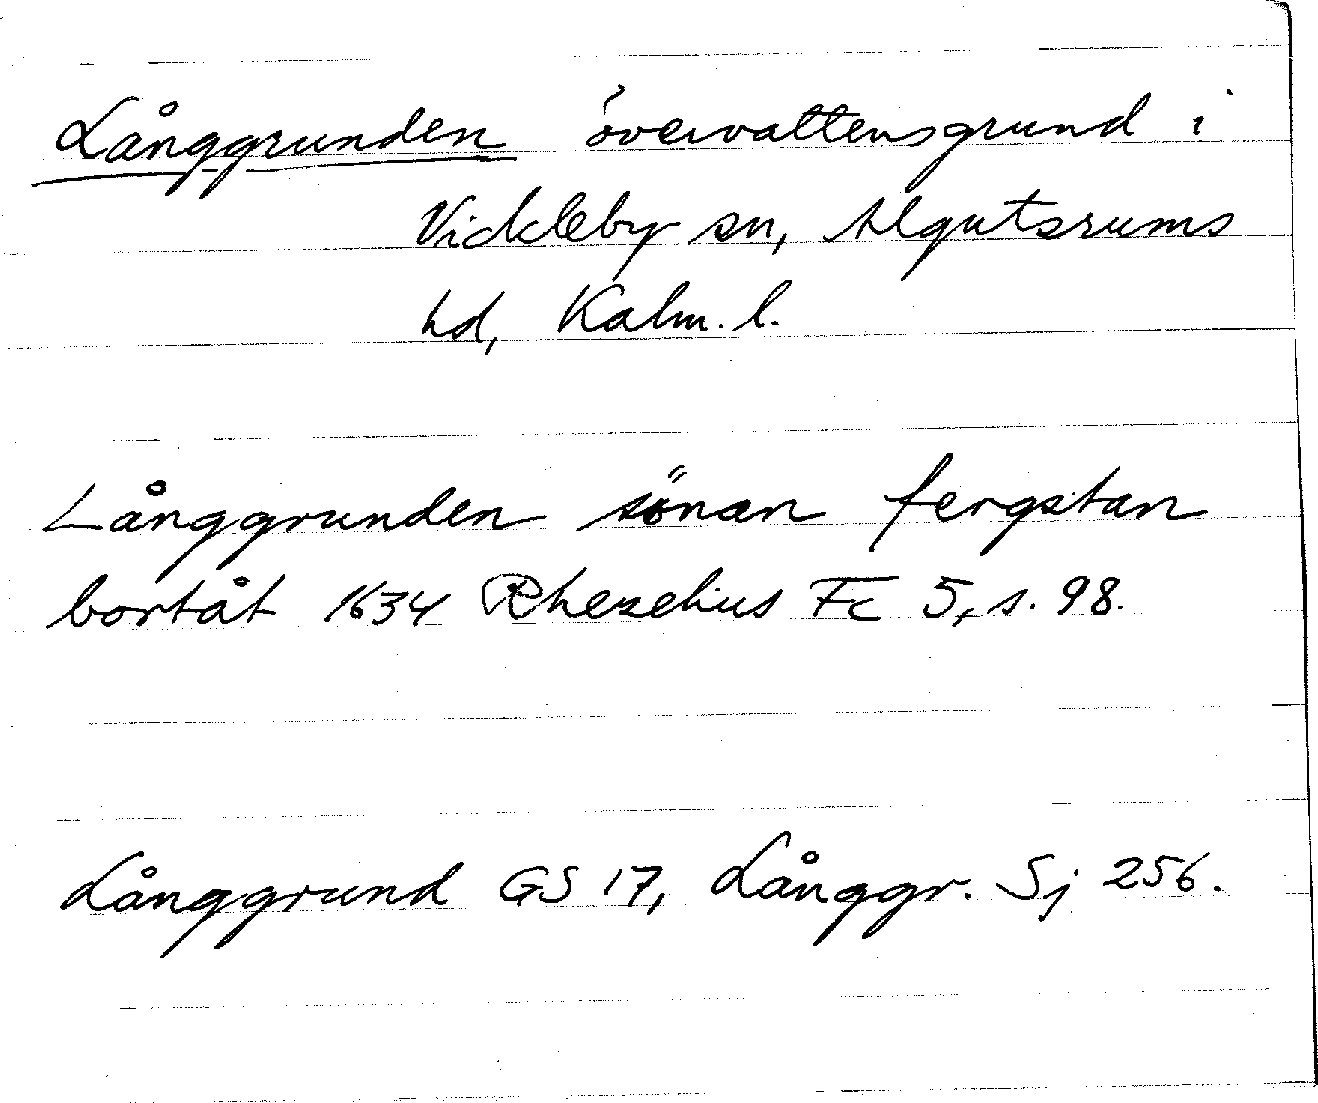 Långgrunden övervattensgrund i
Vickleby sn, Algutsrums
hd, Kalm. l.
Långgrunden sönan fergstan
bortåt 1634 Rhezelius Fc 5, s. 98.
Långgrund GS 17, Långgr. Sj 256.